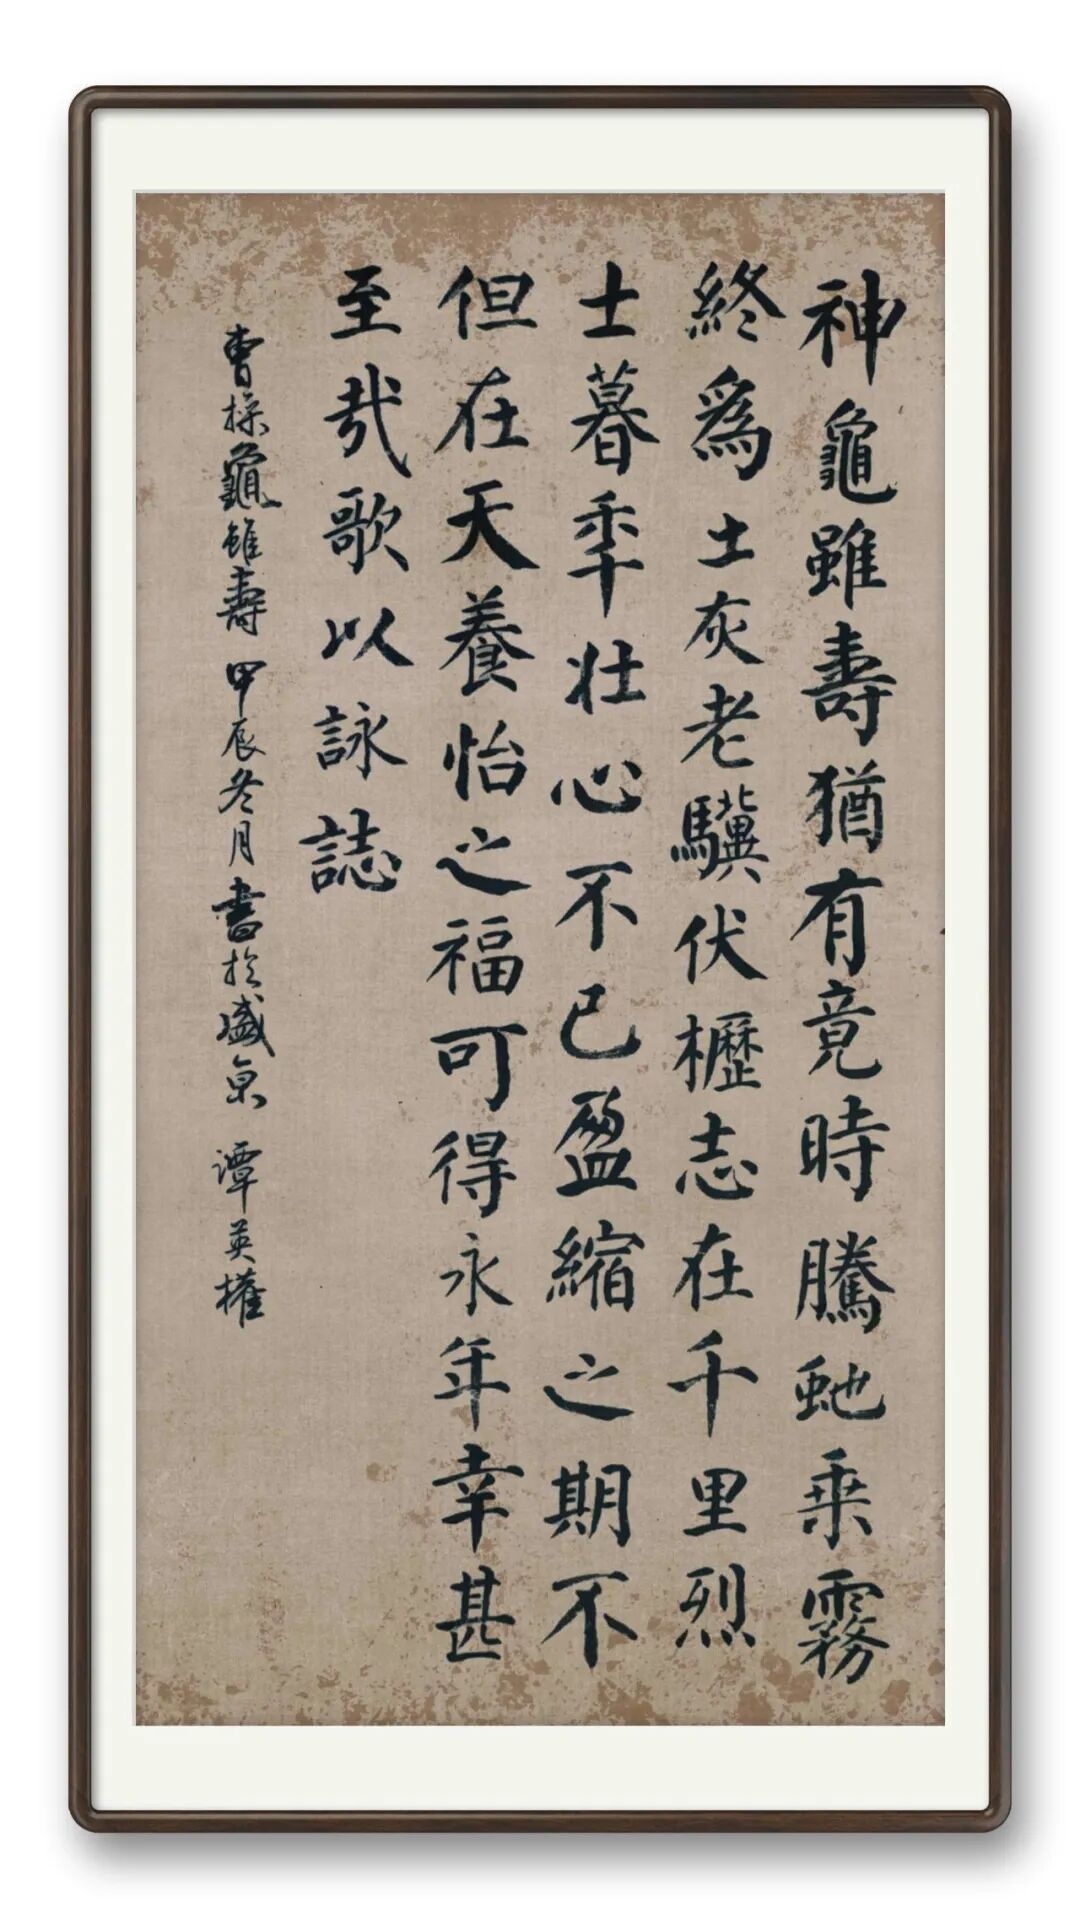 神龜雖壽猶有竟時騰虵乘霧
終爲土灰老驥伏櫪志在千里烈
士暮秊壯心不已盈縮之期不
但在天養怡之福可得永年幸甚
至哉歌以詠誌
曹操龜雖壽 甲辰冬月書於盛京 譚英權